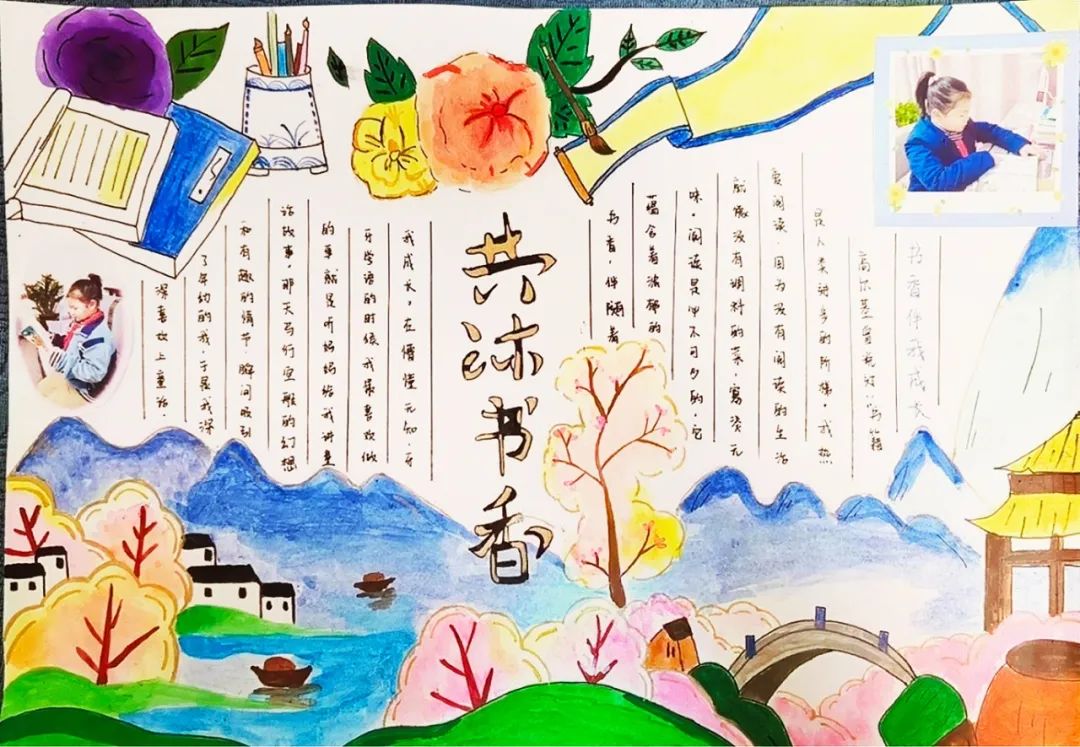 共沐书香
书香伴我成长
高尔基曾说过:“书籍
是人类进步的阶梯。我热
爱阅读,因为没有阅读的生活
就像没有调料的菜,寡淡无
味。阅读是不可少的,它
蕴含着浓郁的
书香,伴随着
我成长。在懵懂无知,牙
牙学语的时候,我最喜欢做
的事就是听妈妈给我讲童
话故事。那天马行空般的幻想
和有趣的情节,瞬间吸引
了年幼的我,于是我深
深喜欢上童话。